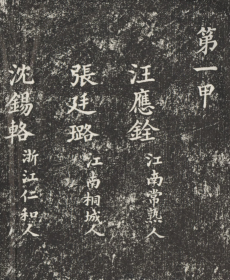 第一甲
汪應銓 江南常熟人
張廷璐 江南桐城人
沈錫輅 浙江仁和人